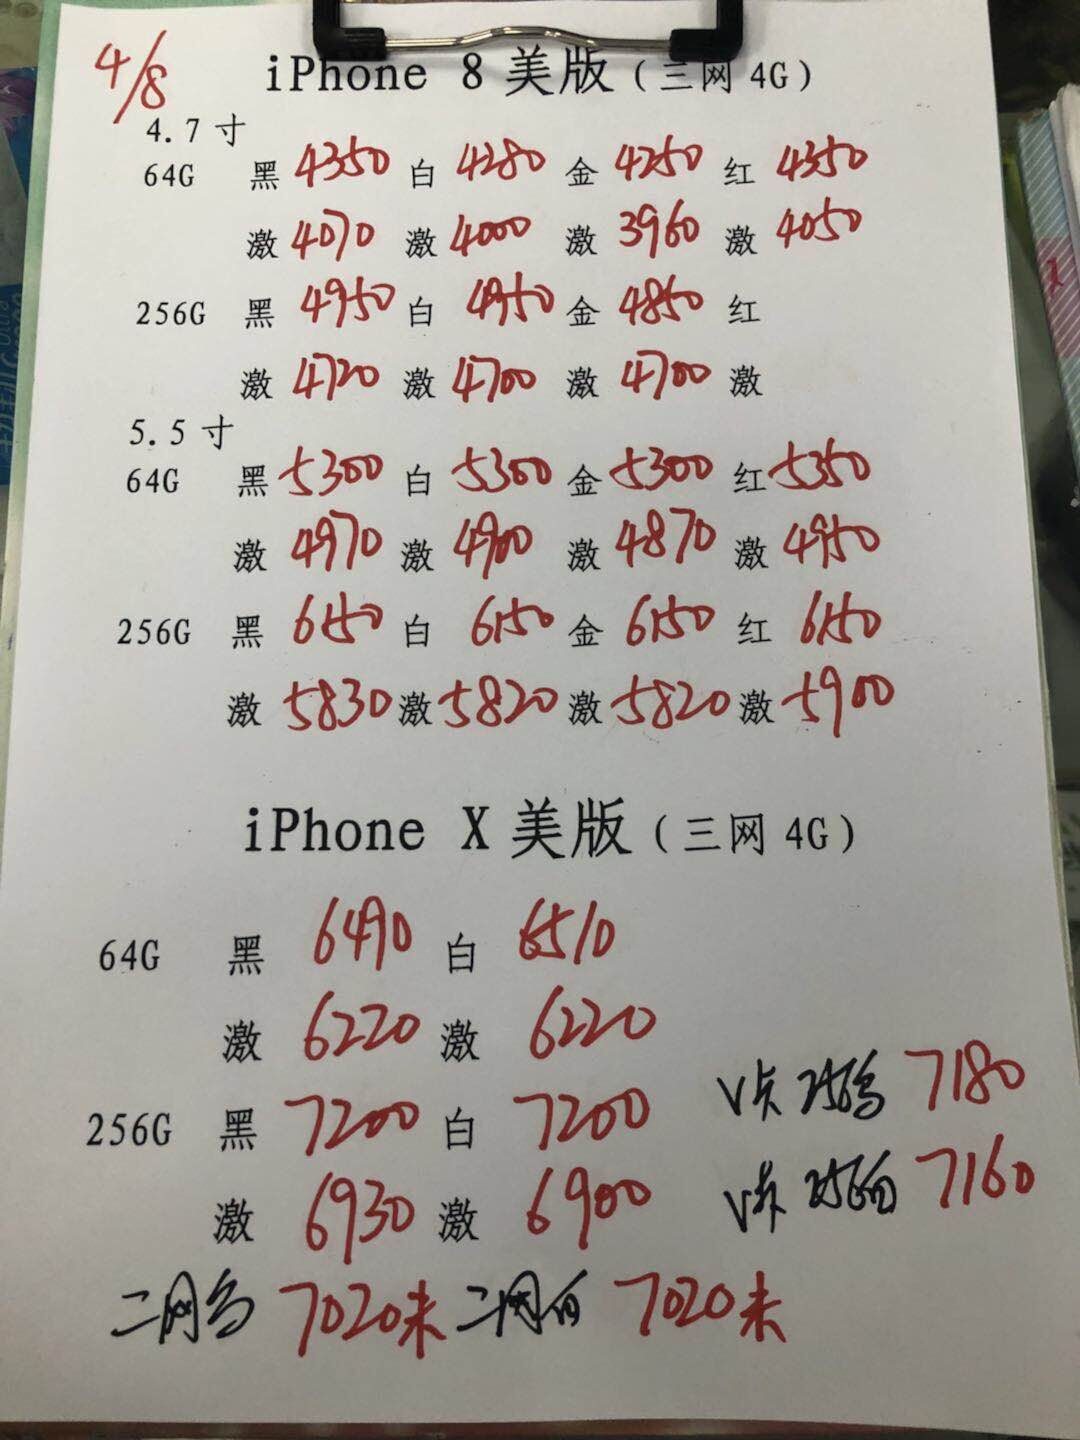 4/8
iPhone 8 美版(三网4G)
4.7寸
64G 黑 4350 白 4280 金 4250 红 4350
激 4070 激 4000 激 3960 激 4050
256G 黑 4950 白 4950 金 4850 红
激 4720 激 4700 激 4700 激
5.5寸
64G 黑 5300 白 5300 金 5300 红 5350
激 4970 激 4900 激 4870 激 4950
256G 黑 6150 白 6150 金 6150 红 6150
激 5830 激 5820 激 5820 激 5900
iPhone X 美版(三网4G)
64G 黑 6490 白 6510
激 6220 激 6220
V卡 256乌 7180
256G 黑 7200 白 7200
V卡 256白 7160
激 6930 激 6900
二网乌 7020未 二网白 7020未